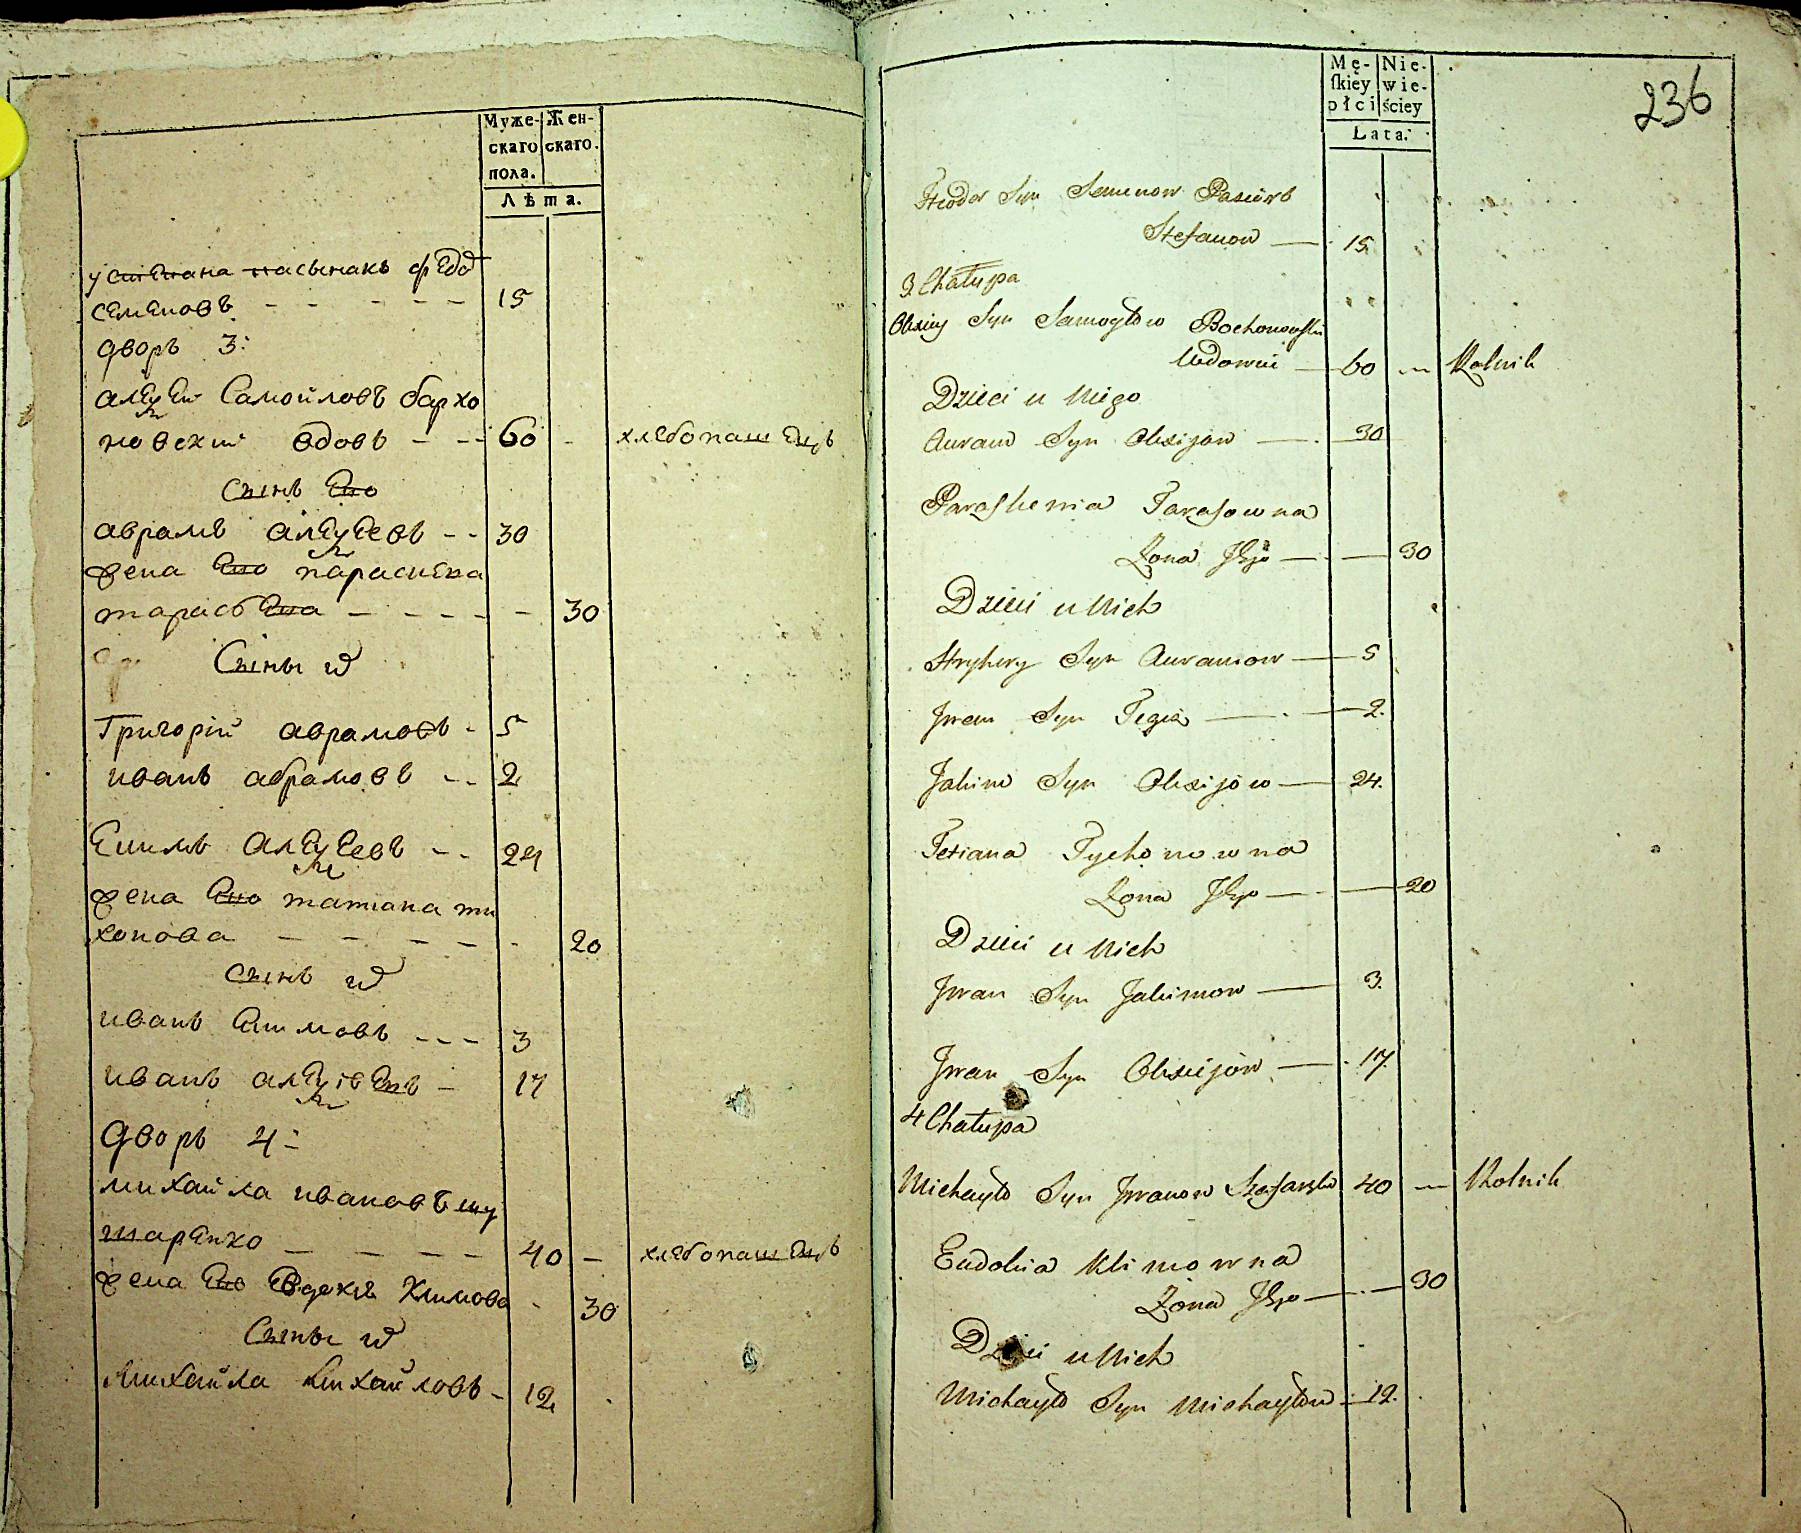 Муже-
скаго
пола.
Жен-
скаго.
Лѣта.
у степана пасынакъ федо
семеновъ - - - - - 15
дворъ 3:
алеѯей Самойловъ бархо
новский вдовъ - - 60 - хлебопашецъ
Сынъ его
аврамъ алеѯеевъ - - 30
жена его парасковя
тарасвена - - - - - 30
Сыны их
Григорій аврамовъ - 5
иванъ аврамовъ - - 2
Екимъ алеѯеевъ - - 24
жена его татиана ти
хонова - - - - - 20
сынъ их
иванъ Екимовъ - - - 3
иванъ алеѯеевъ - 17
дворъ 4:
михайла ивановъ шу
шаренко - - - - 40 - хлебопашецъ
жена его Евдокія Климова - 30
Сыны их
Михайла михайловъ - 12
236
Mę-
ſkiey
płci
Nie-
wie-
ściey
Lata.
Fteodor Syn Semenow Pasierb
Stefanow — 15.
3. Chałupa
Olexiey Syn Samoyłow Bochonowski
Wdowiec — 60 — Rolnik
Dzieci u Niego
Auram Syn Olexijow — 30
Paraskewia Tarasowna
Zona Jego — 30
Dzieci u Nich
Hryhory Syn Auramow — 5
Jwan Syn Tegoż — 2.
Jakim Syn Olexijow — 24.
Tetiana Tychonowna
Zona Jego — 20
Dzieci u Nich
Jwan Syn Jakimow — 3.
Jwan Syn Olexiejow — 17.
4 Chałupa
Michayło Syn Jwanow 40 — Rolnik
Eudokia Klimowna
Zona Jego — 30
Dzieci u Nich
Michayło Syn Michayłow — 12.